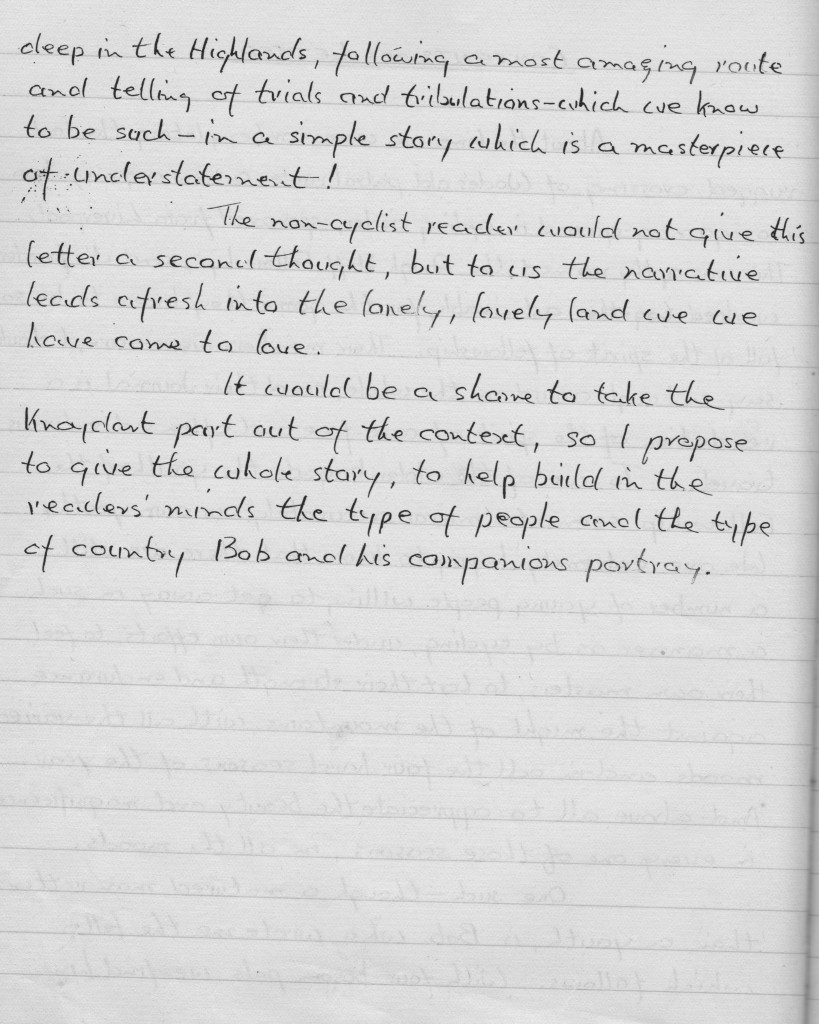 deep in the Highlands, following a most amazing route
and telling of trials and tribulations-which we know
to be such-in a simple story which is a masterpiece
of understatement!
The non-cyclist reader would not give this
letter a second thought, but to us the narrative
leads afresh into the lonely, lovely land we we
have come to love.
It would be a shame to take the
Knoydart part out of the context, so I propose
to give the whole story, to help build in the
readers' minds the type of people and the type
of country Bob and his companions portray.